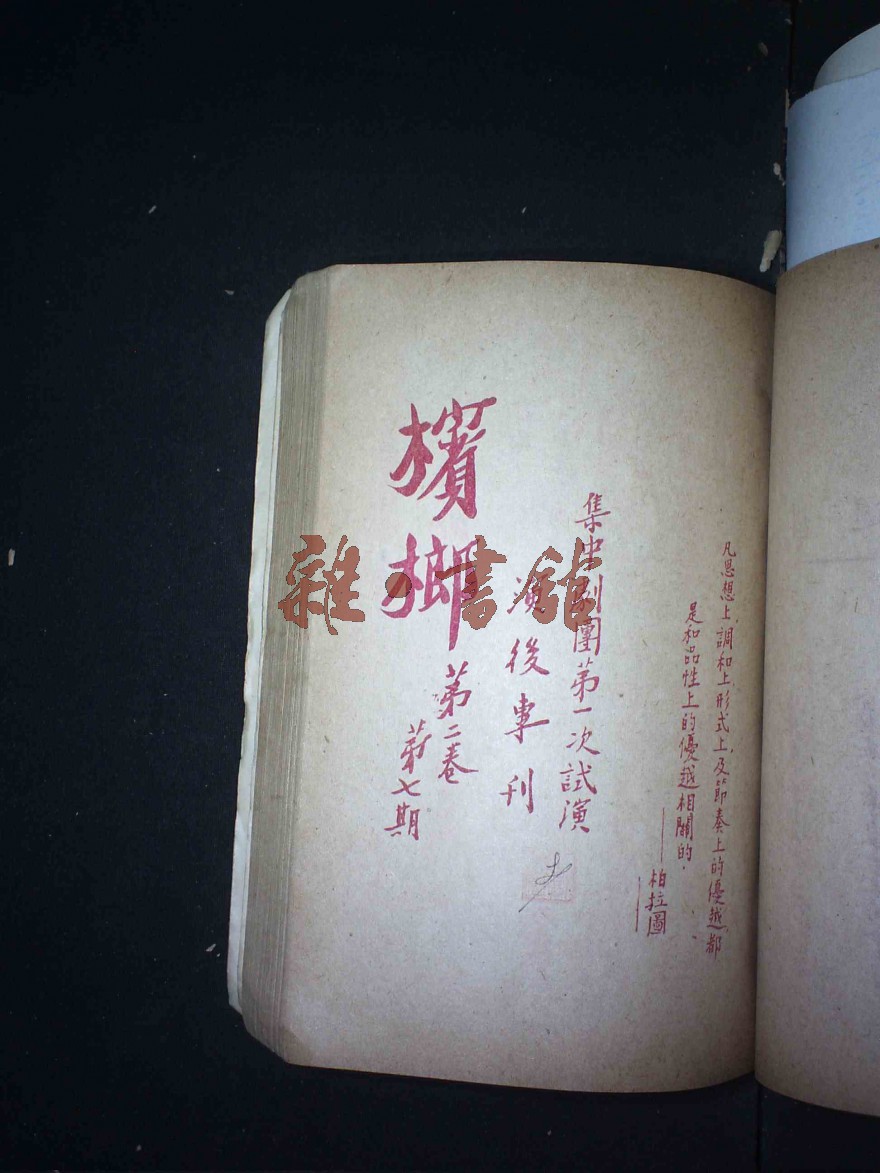 凡思想上、調和上、形式上、及節奏上的優越、都
是和品性上的優越相關的．
——柏拉圖
集中劇團第一次試演
演後專刊
檳榔
第二卷
第七期
雜·書館